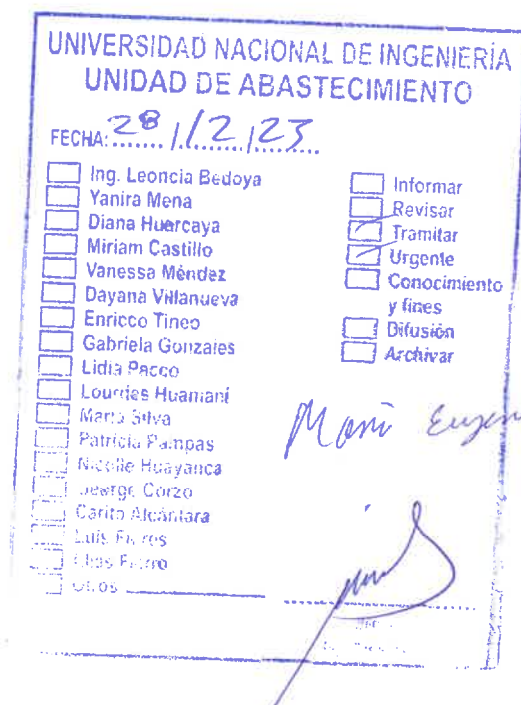 UNIVERSIDAD NACIONAL DE INGENIERÍA
UNIDAD DE ABASTECIMIENTO
FECHA: 28/12/23
Ing. Leoncia Bedoya
Yanira Mena
Diana Huarcaya
Miriam Castillo
Vanessa Méndez
Dayana Villanueva
Enricco Tineo
Gabriela Gonzales
Lidia Pacco
Lourdes Huamaní
María Silva
Patricia Pampas
Nicolle Huayanca
George Corzo
Carito Alcántara
Luis Flores
Elias Fierro
Otros
Informar
Revisar
Tramitar
Urgente
Conocimiento
y fines
Difusión
Archivar